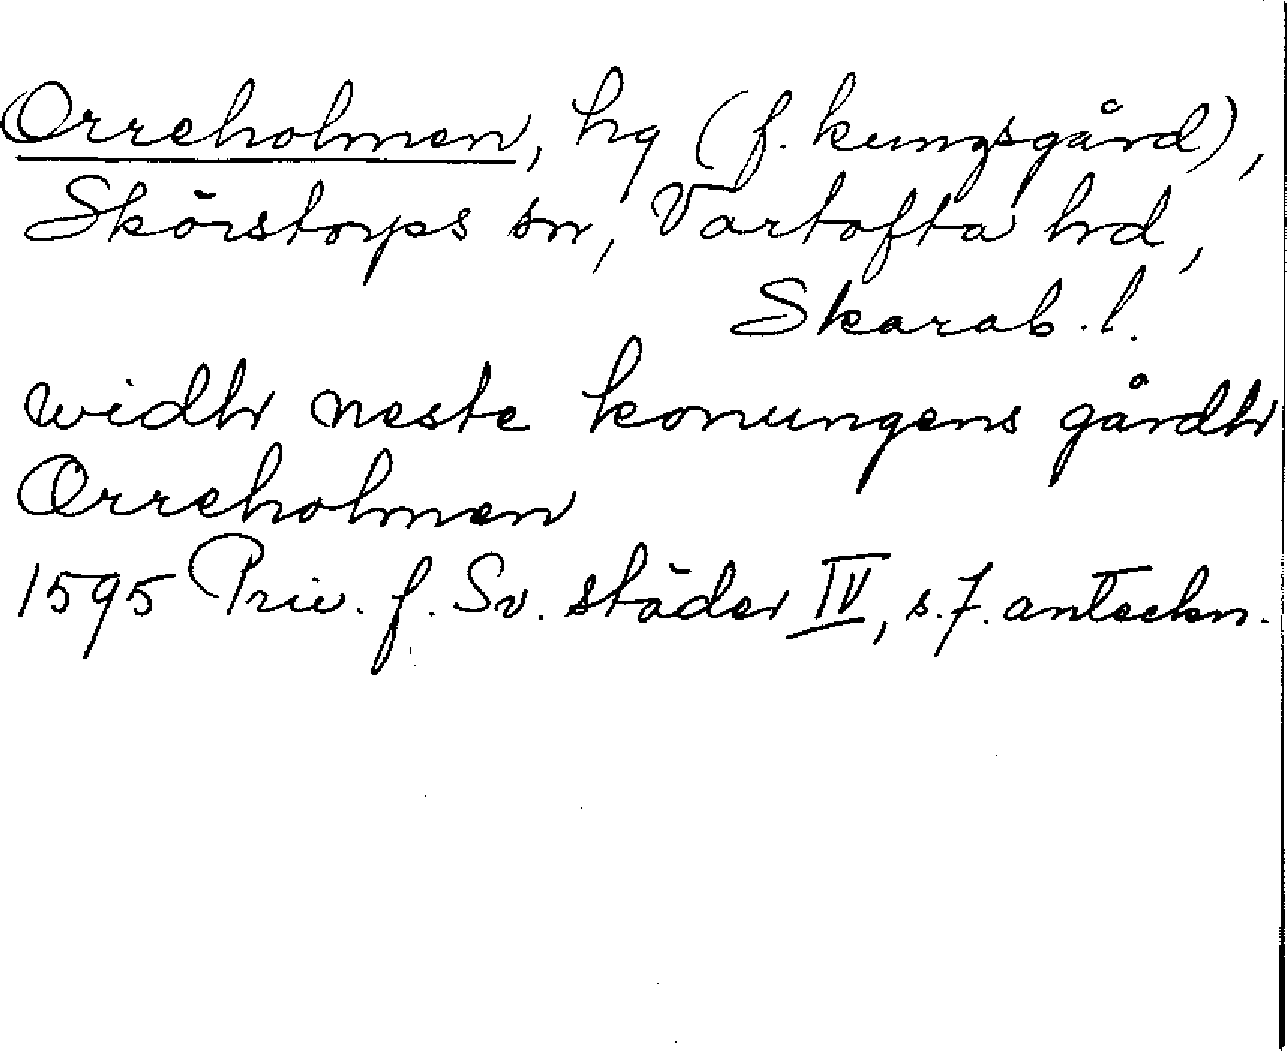 Orreholmen, hg (f. kungsgård),
Skörstorps sn, Vartofta hd,
Skarab. l.
widhr neste konungens gårdhr
Orreholmen
1595 Priv. f. Sv. städer IV, s. 7. anteckn.